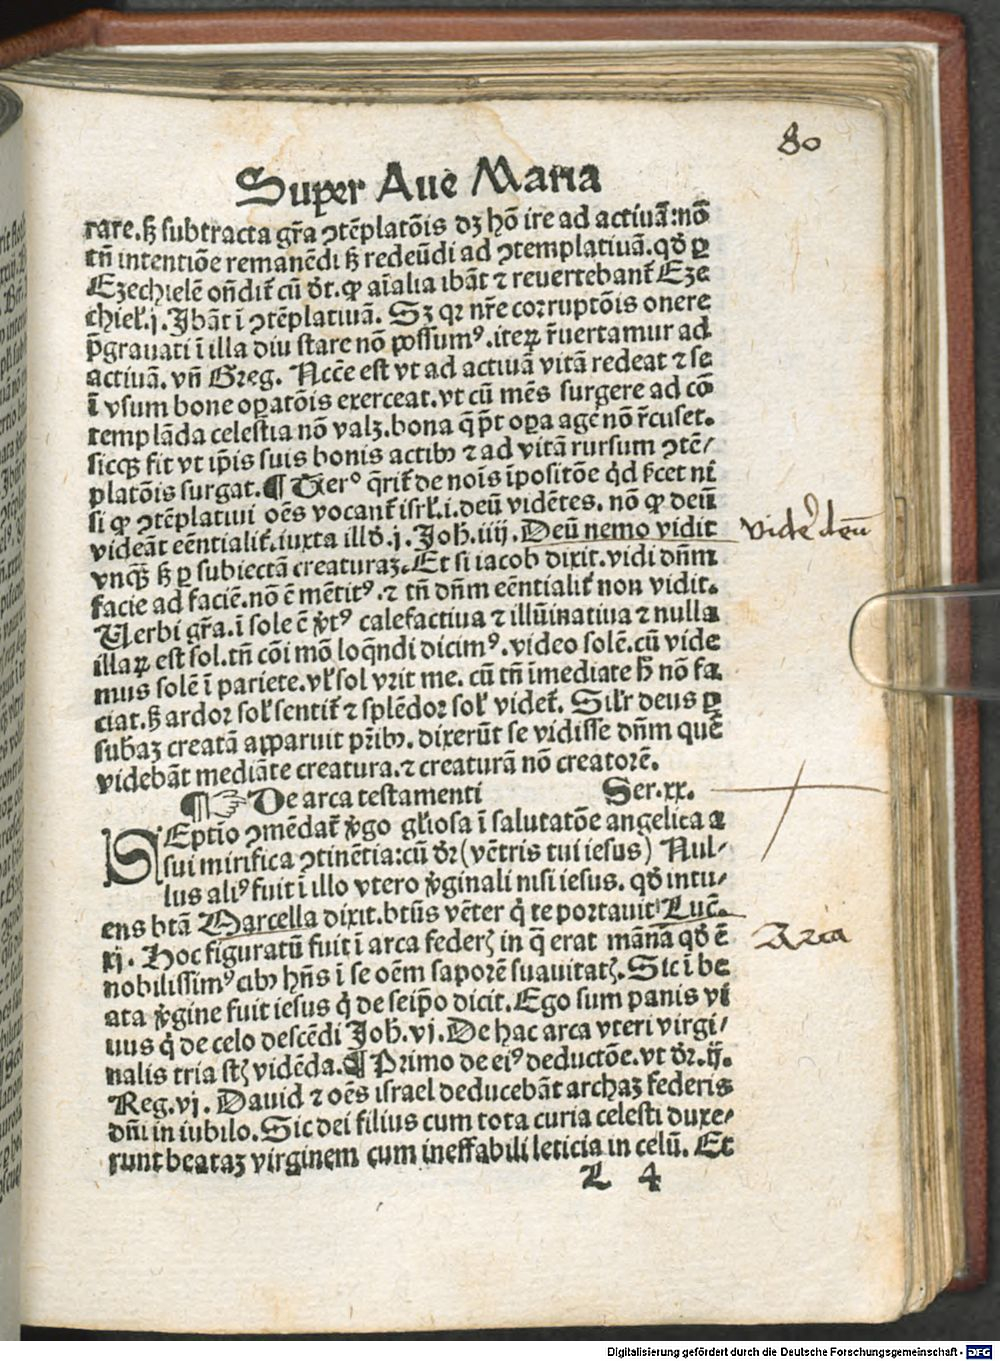 80
Super Aue Maria
rare. sꝫ subtracta gr̃a ꝯtẽplatõis dꝫ hõ ire ad actiuã: nõ
tñ intentiõe remanẽdi sꝫ redeũdi ad ꝯtemplatiuã. qđ ꝑ
Ezechielẽ oñdit᷑ cũ dr̃t. ꝙ aĩalia ibãt ⁊ reuertebant᷑ Eze
chiel̕. j. Ibãt ĩ ꝯtẽplatiuã. Sꝫ qꝛ nr̃e corruptõis onere
p̃grauati ĩ illa diu stare nõ possumꝰ. iteꝝ r̃uertamur ad
actiuã. vñ Greg. Ncc̃e est vt ad actiuã vitã redeat ⁊ se
ĩ vsum bone oꝑatõis exerceat. vt cũ mẽs surgere ad cõ
templãda celestia nõ valꝫ. bona q̃ p̃t oꝑa age᷑ nõ r̃cuset.
sicqꝫ fit vt ip̃is suis bonis actibꝰ ⁊ ad vitã rursum ꝯtẽ/
platõis surgat. ¶ Uerꝰ q̃rit᷑ de nois ĩpositõe q̇d
si ꝙ ꝯtẽplatiui oẽs vocant᷑ isrl̕. i. deũ vidẽtes. nõ ꝙ deũ
videãt eẽntialit᷑. iuxta illđ. j. Joh̃. iiij. Deũ nemo vidit
vnqꝫ̃ sꝫ ꝑ subiectã creaturaꝫ. Et si iacob dixit. vidi dñm
facie ad faciẽ. nõ ẽ mẽtitꝰ. ⁊ tñ dñm eẽntialit᷑ non vidit.
Uerbi gr̃a. ĩ sole ẽ v̓tꝰ calefactiua ⁊ illũinatiua ⁊ nulla
illaꝝ est sol. tñ cõi mõ loq̃ndi dicimꝰ. video solẽ. cũ vide
mus solẽ ĩ pariete. vl̕ sol vrit me. cũ tñ ĩmediate h̃ nõ fa
ciat. sꝫ ardor sol̕ sentit᷑ ⁊ splẽdor sol̕ videt᷑. Sil̕r deus ꝑ
subaꝫ creatã apparuit pr̃ibꝰ. dixerũt se vidisse dñm quẽ
videbãt mediãte creatura. ⁊ creaturã nõ creatorẽ.
¶ ☞ De arca testamenti Ser. xx.
SEptio ꝯmẽdat᷑ v̓go gl̕iosa ĩ salutatõe angelica a
sui mirifica ꝯtinẽtia: cũ dr̃ (vẽtris tui iesus) Nul/
lus aliꝰ fuit ĩ illo vtero v̓ginali nisi iesus. qđ intu/
ens btã Marcella dixit. btũs vẽter q̇ te portauit Luc̃.
xj. Hoc figuratũ fuit ĩ arca federꝭ in q̃ erat mãna qđ ẽ
nobilissimꝰ cibꝰ hñs ĩ se oẽm saporẽ suauitatꝭ. Sic ĩ be
ata v̓gine fuit iesus q̇ de seip̃o dicit. Ego sum panis vi
uus q̇ de celo descẽdi Joh̃. vj. De hac arca vteri virgi/
nalis tria st̃ vidẽda. ¶ Primo de eiꝰ deductõe. vt dr̃. ij.
Reg. vj. Dauid ⁊ oẽs israel deducebãt archaꝫ federis
dñi in iubilo. Sic dei filius cum tota curia celesti duxe/
runt beataꝫ virginem cum ineffabili leticia in celũ. Et
L 4
videre deũ
Arca
Digitalisierung gefördert durch die Deutsche Forschungsgemeinschaft - DFG